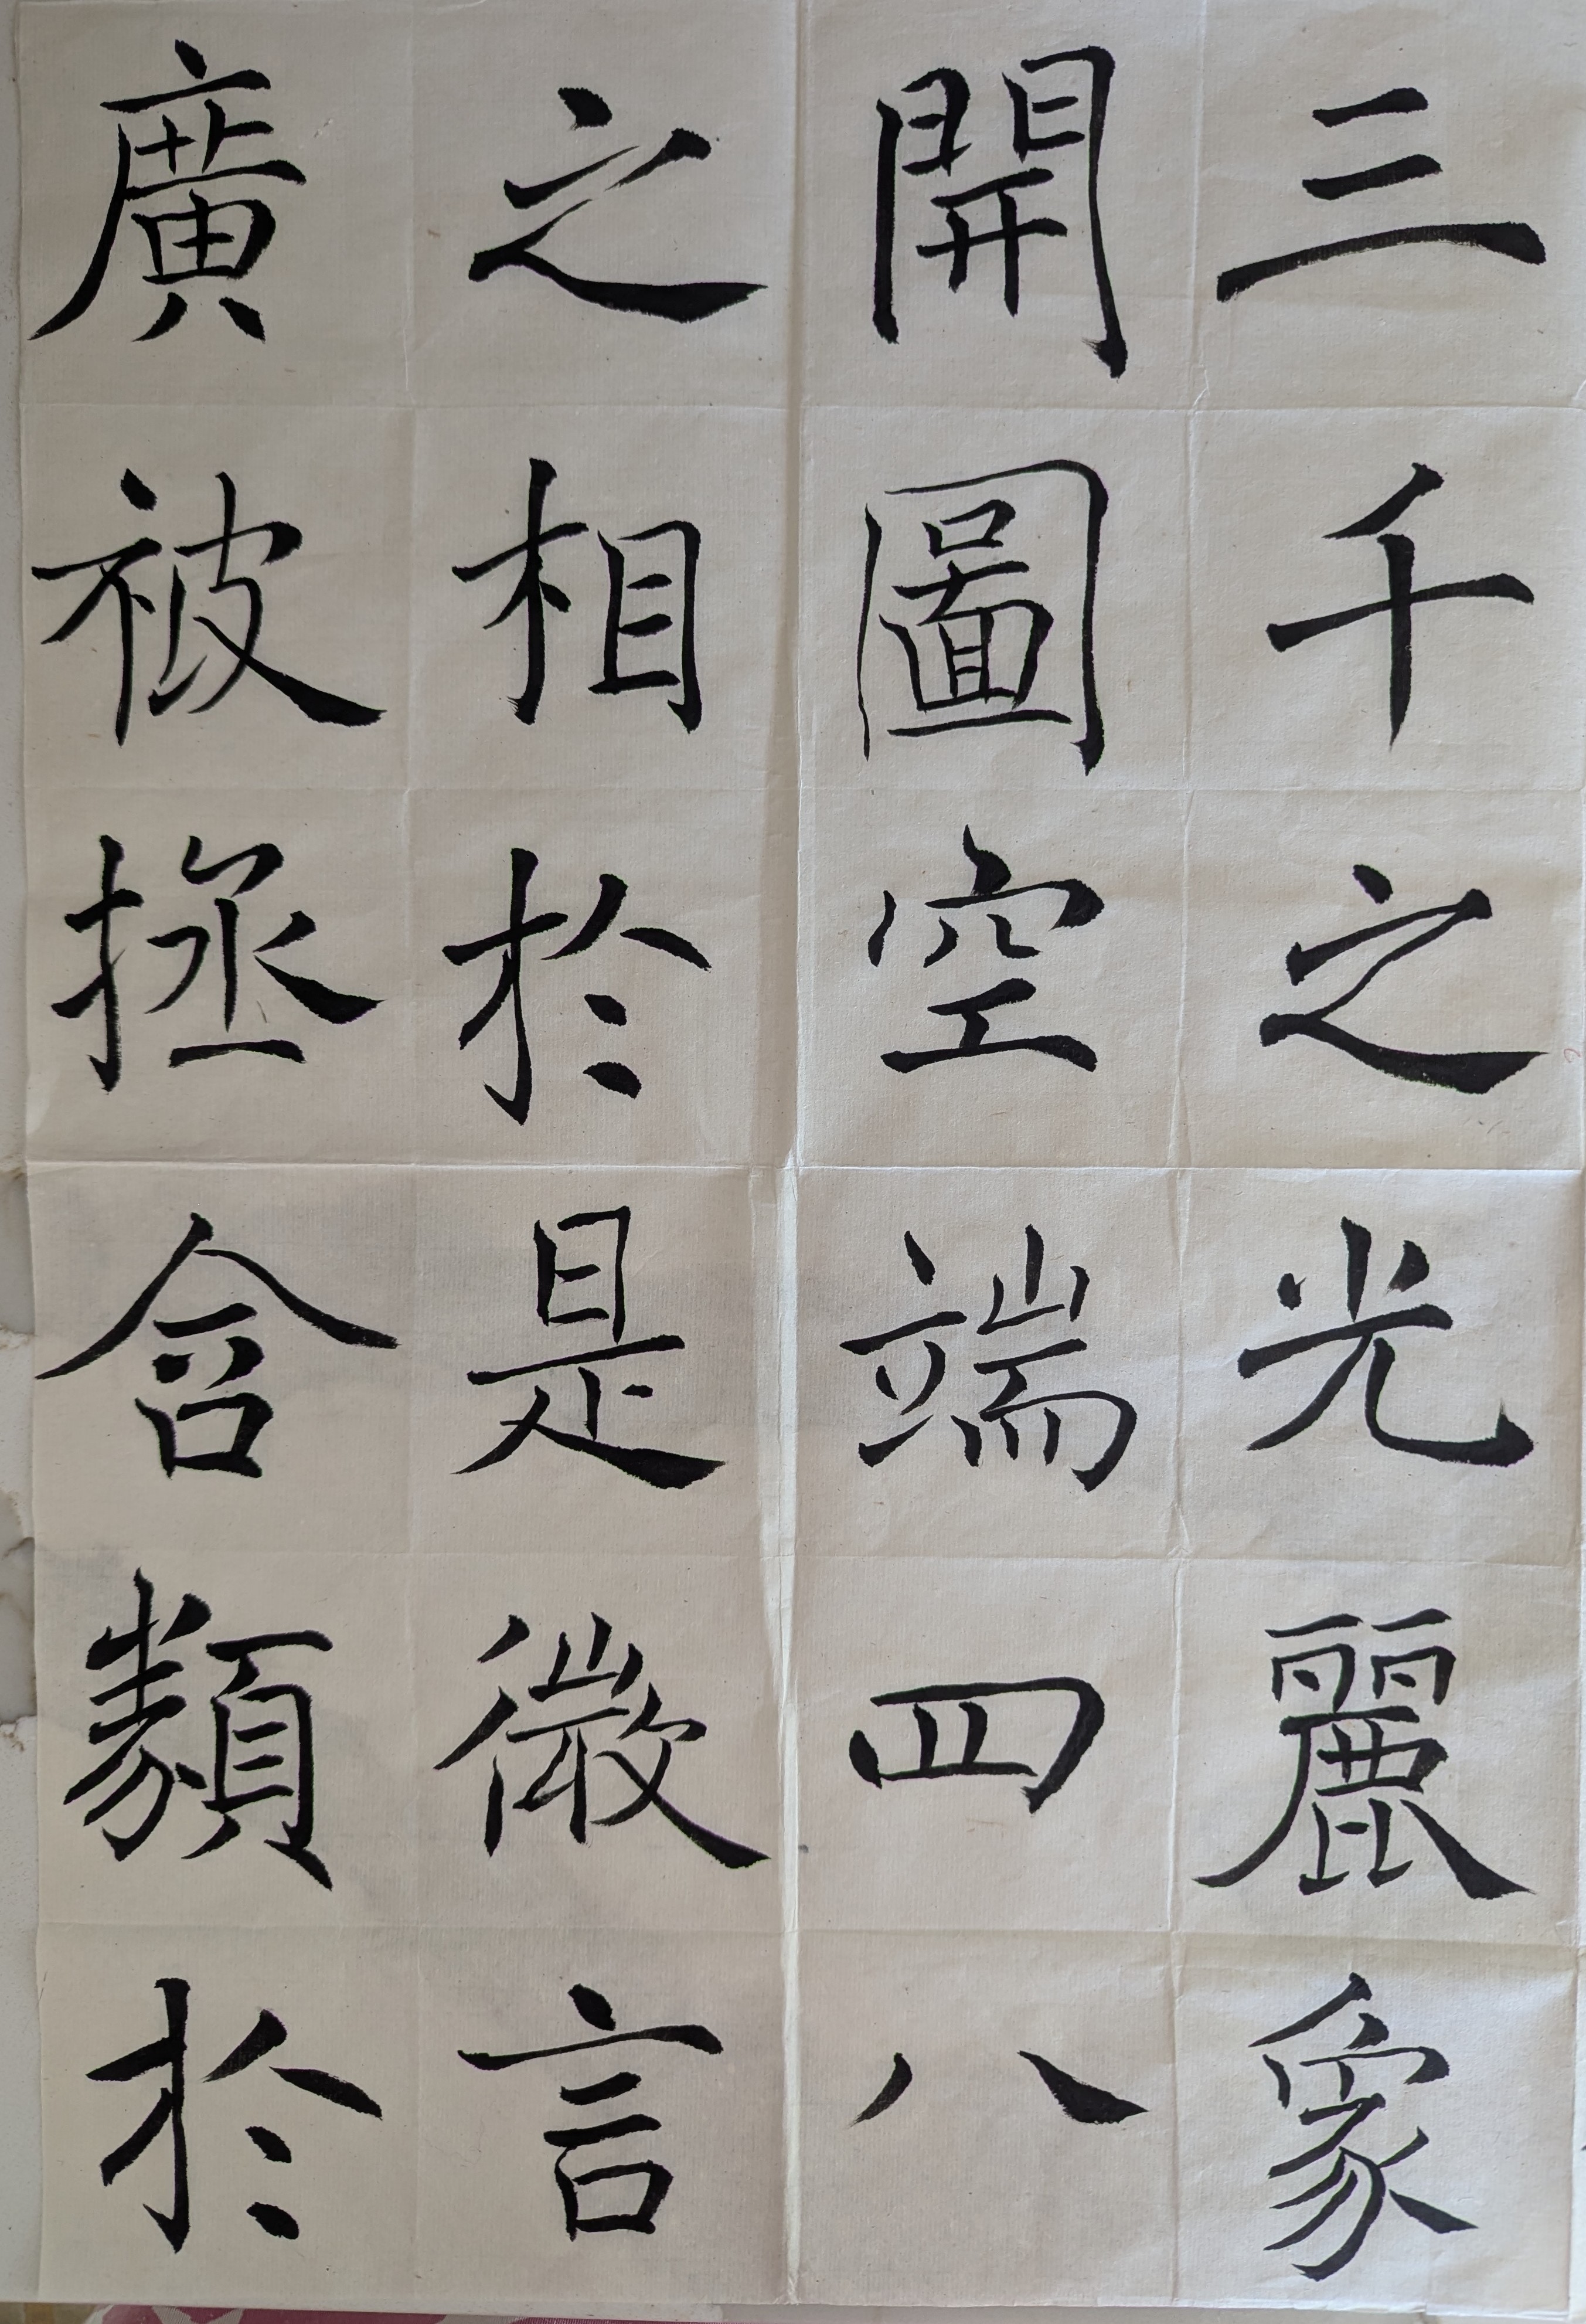 三千之光麗象
開圖空端四八
之相於是微言
廣被拯含類於